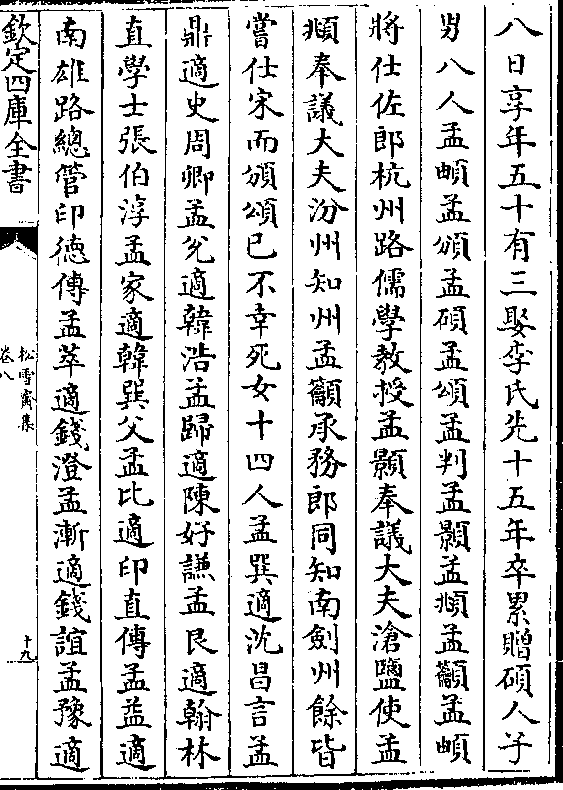 八日享年五十有三娶李氏先十五年卒累贈碩人子
男八人孟頔孟頒孟碩孟頌孟判孟顥孟頫孟籲孟頔
將仕佐郎杭州路儒學教授孟顥奉議大夫滄鹽使孟
頫奉議大夫汾州知州孟籲承務郎同知南劍州餘皆
嘗仕宋而頒頌已不幸死女十四人孟巽適沈昌言孟
鼎適史周卿孟兊適韓浩孟歸適陳好謙孟艮適翰林
直學士張伯淳孟家適韓巽父孟比適印直傅孟益適
南雄路總管印德傅孟萃適錢澄孟漸適錢誼孟豫適
欽定四庫全書
松雪齋集
卷八
十九